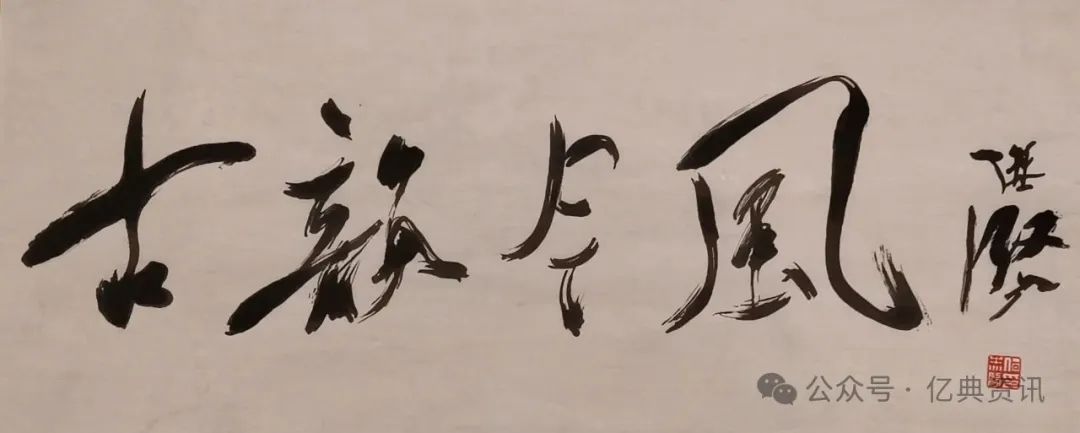 古韻今風
公众号·亿典资讯